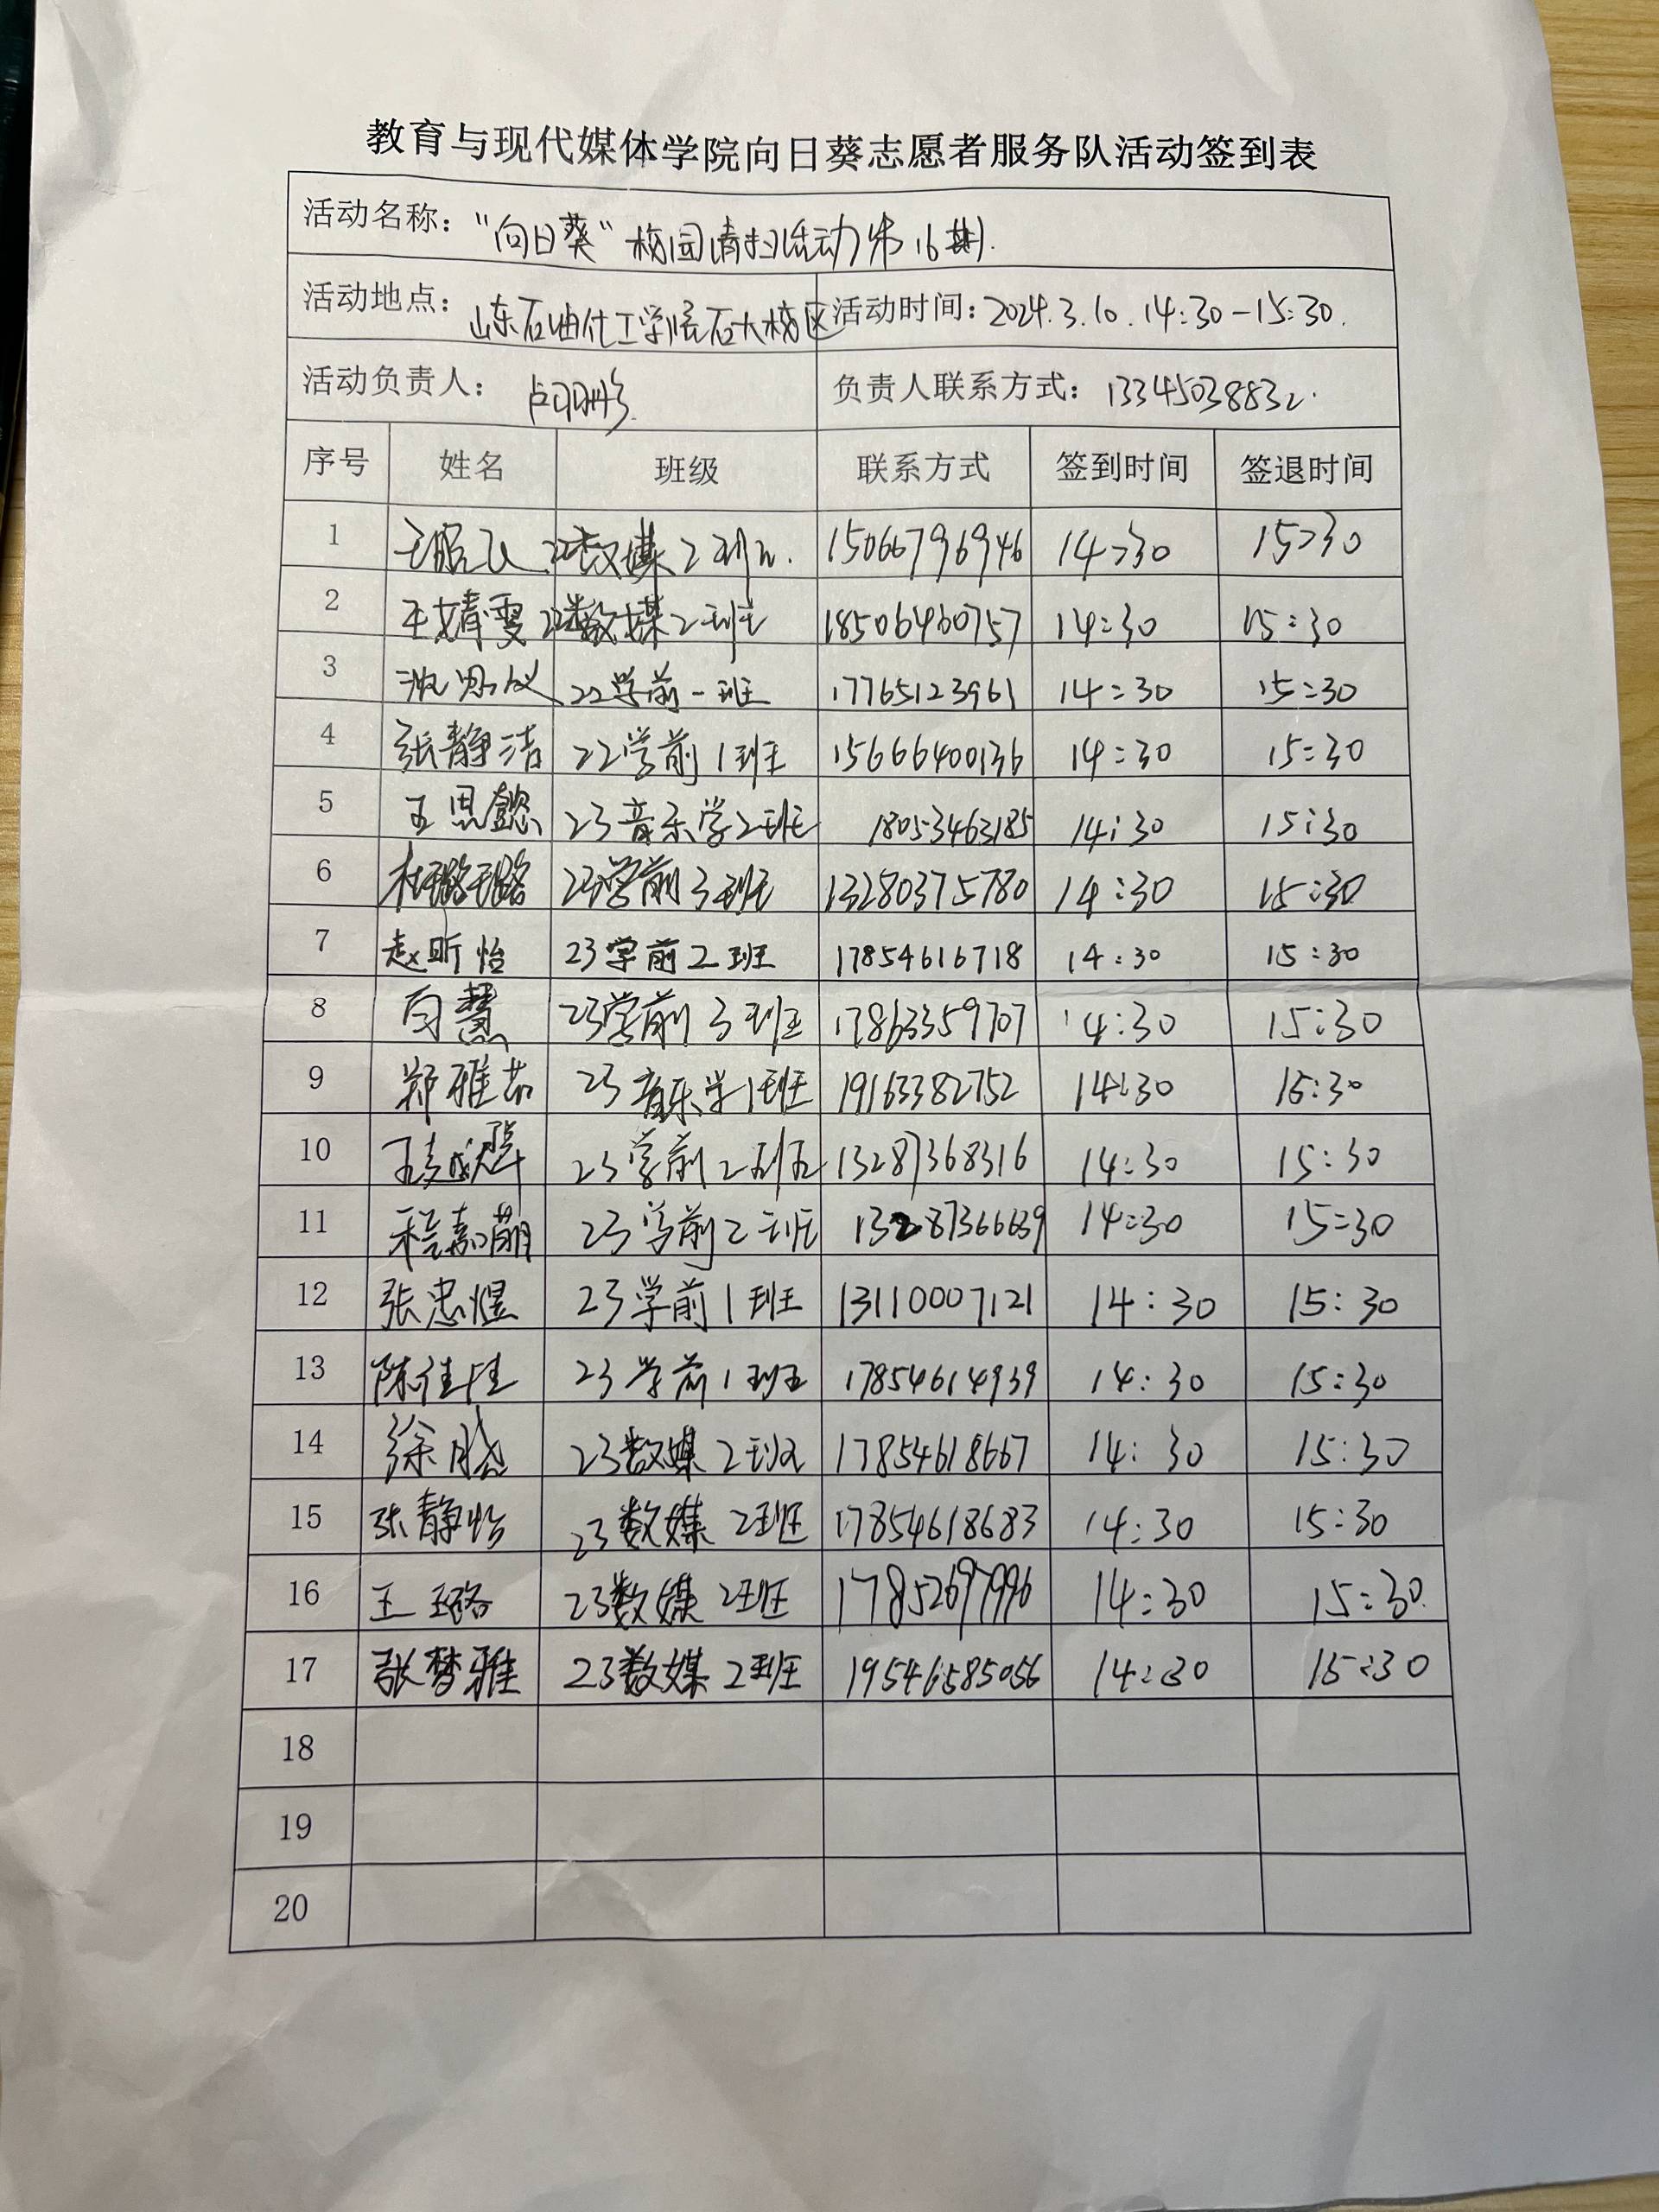 教育与现代媒体学院向日葵志愿者服务队活动签到表
活动名称：“向日葵”校园清扫活动第16期.
活动地点：山东石油化工学院石大校区 活动时间：2024.3.10.14:30-15:30.
活动负责人： 负责人联系方式：13345038832.
序号 姓名 班级 联系方式 签到时间 签退时间
1 22数媒2班 15066796946 14:30 15:30
2 王婧雯 22数媒2班 18506460757 14:30 15:30
3 沈思仪 22学前一班 17765123961 14:30 15:30
4 张静洁 22学前1班 15666400136 14:30 15:30
5 王思懿 23音乐学2班 18053463185 14:30 15:30
6 杜璐璐 23学前3班 13280375780 14:30 15:30
7 赵昕怡 23学前2班 17854616718 14:30 15:30
8 白慧 23学前3班 17863359707 14:30 15:30
9 郑雅茹 23音乐学1班 19163382752 14:30 15:30
10 23学前2班 13287368316 14:30 15:30
11 程嘉萌 23学前2班 13287366639 14:30 15:30
12 张忠煜 23学前1班 13110007121 14:30 15:30
13 陈佳佳 23学前1班 17854614939 14:30 15:30
14 徐 23数媒2班 17854618667 14:30 15:30
15 张静怡 23数媒2班 17854618683 14:30 15:30
16 王璐 23数媒2班 17852697996 14:30 15:30.
17 张梦雅 23数媒2班 19546585056 14:30 15:30
18
19
20